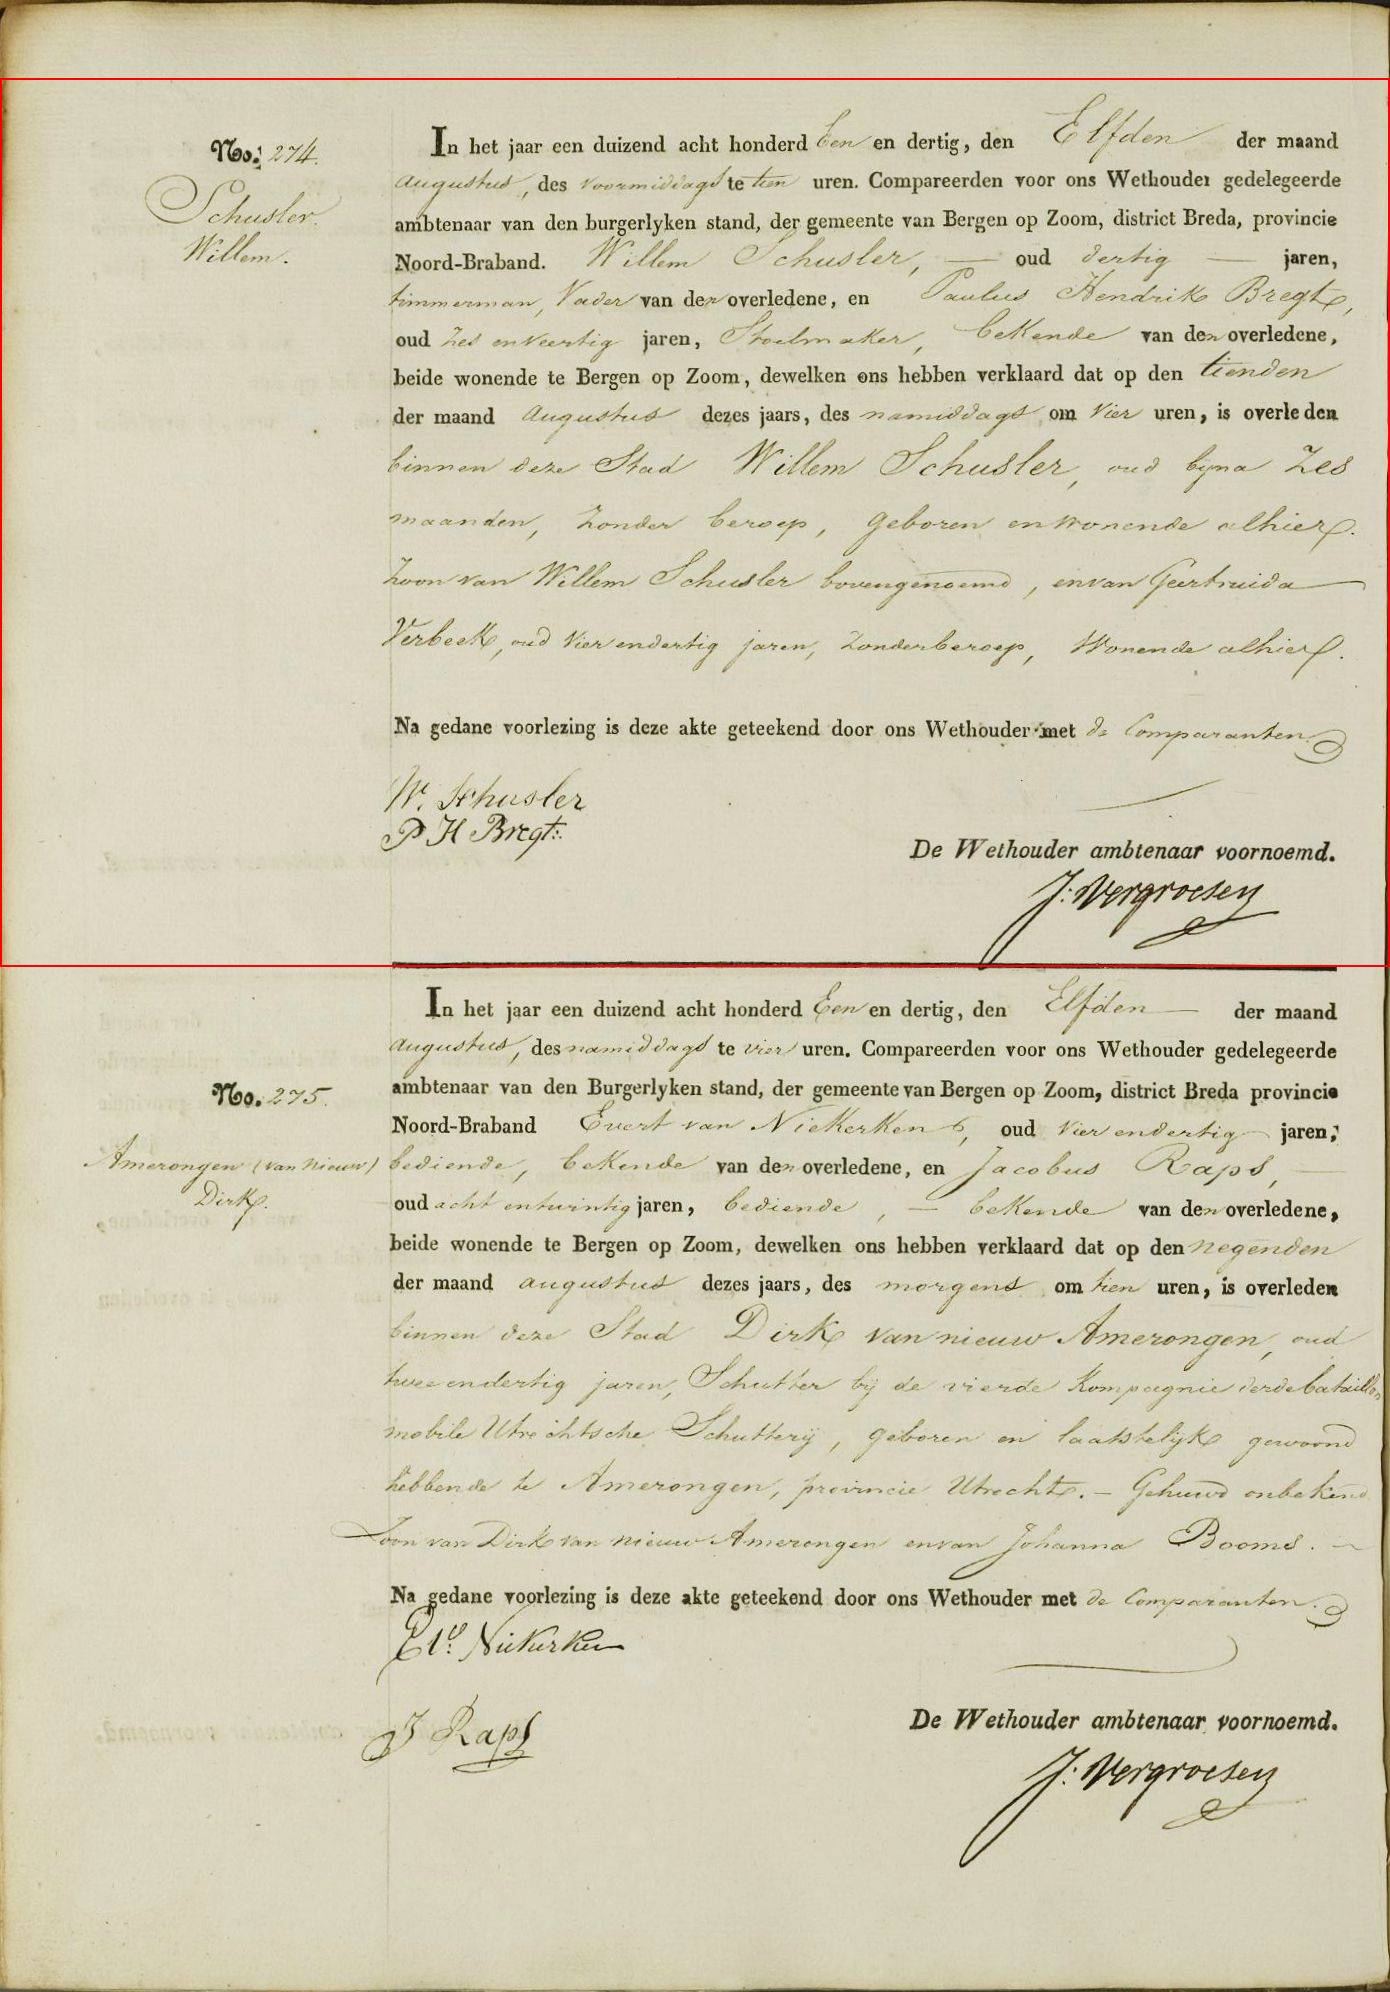 No. 274.
Schusler.
Willem.
In het jaar een duizend acht honderd Een en dertig, den Elfden der maand
Augustus, des voormiddags te tien uren. Compareerden voor ons Wethouder gedelegeerde
ambtenaar van den burgerlyken stand, der gemeente van Bergen op Zoom, district Breda, provincie
Noord-Braband. Willem Schusler, — oud dertig — jaren,
timmerman, Vader van den overledene, en Paulus Hendrik Bregt,
oud Zes en Veertig jaren, Stoelmaker, bekende van den overledene,
beide wonende te Bergen op Zoom, dewelken ons hebben verklaard dat op den tienden
der maand Augustus dezes jaars, des namiddags om Vier uren, is overleden
binnen deze Stad Willem Schusler, oud bijna Zes
maanden, Zonder beroep, geboren en wonende alhier.
Zoon van Willem Schusler bovengenoemd, en van Geertruida
Verbeek, oud Vier en dertig jaren, Zonder beroep, Wonende alhier.
Na gedane voorlezing is deze akte geteekend door ons Wethouder met de Comparanten.
W. Schusler
P H Bregt:
De Wethouder ambtenaar voornoemd.
J: Vergroesen
No. 275.
Amerongen (van Nieuw)
Dirk.
In het jaar een duizend acht honderd Een en dertig, den Elfden — der maand
Augustus, des namiddags te vier uren. Compareerden voor ons Wethouder gedelegeerde
ambtenaar van den Burgerlyken stand, der gemeente van Bergen op Zoom, district Breda provincie
Noord-Braband Evert van Niekerken, oud Vier en dertig jaren,
bediende, bekende van den overledene, en Jacobus Raps, —
oud acht en twintig jaren, bediende, — bekende van den overledene,
beide wonende te Bergen op Zoom, dewelken ons hebben verklaard dat op den negenden
der maand augustus dezes jaars, des morgens om tien uren, is overleden
binnen deze Stad Dirk van nieuw Amerongen, oud
twee en dertig jaren, Schutter bij de vierde Kompagnie derde bataillon
mobile Utrechtsche Schutterij, geboren en laatstelijk gewoond
hebbende te Amerongen, provincie Utrecht. — Gehuwd onbekend
Zoon van Dirk van nieuw Amerongen en van Johanna Booms. —
Na gedane voorlezing is deze akte geteekend door ons Wethouder met de Comparanten.
Niekerken
J Raps
De Wethouder ambtenaar voornoemd.
J: Vergroesen